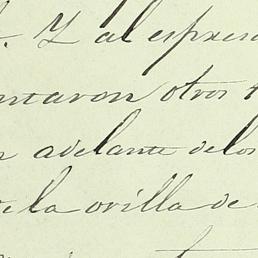 Y al espresa
ntaron otros
adelante de los
de la orilla de